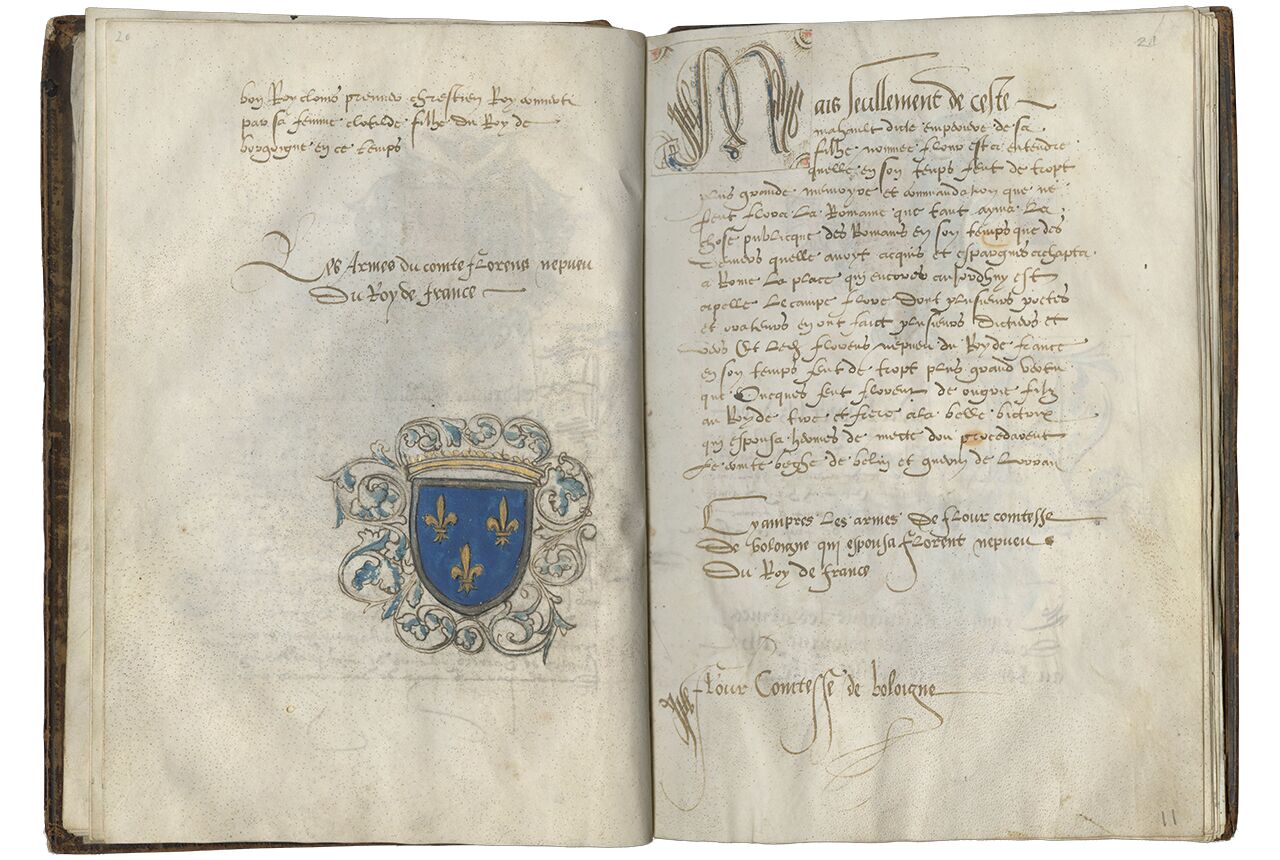 20
bon Roy clouis premier chrestien Roy conuerti
par sa femme clotilde fille du Roy de
borgoigne en ce temps
Les Armes du comte florens nepueu
Du Roy de france
21
Mais seullement de ceste
mahault dicte empeuiere de sa
filhe nommee flour est a entendre
quelle en son temps feut de tropt
plus grande memoyre et commandation que ne
feut flora la Romaine que tant ayma la
chose publicque des Romains en son temps que des
deniers quelle auoyt acquis et espargnes achapta
a Rome la place qui encores aujordhuy est
apelle le campe flore dont plusieurs poetes
et orateurs en ont faict plusieurs dictiers et
vers Et led florens nepueu du Roy de france
en son temps feut de tropt plus grand vertu
que oncques feut florent de ongrie filz
au Roy de et frere a la belle bictorx
qui espousa heruies de mette dou procedarent
le comte beghe de belin et guerin de Lorran
Cy ampres les armes de flour comtesse
de boloigne qui espousa florent nepueu
Du Roy de france
flour Comtesse de boloigne
11